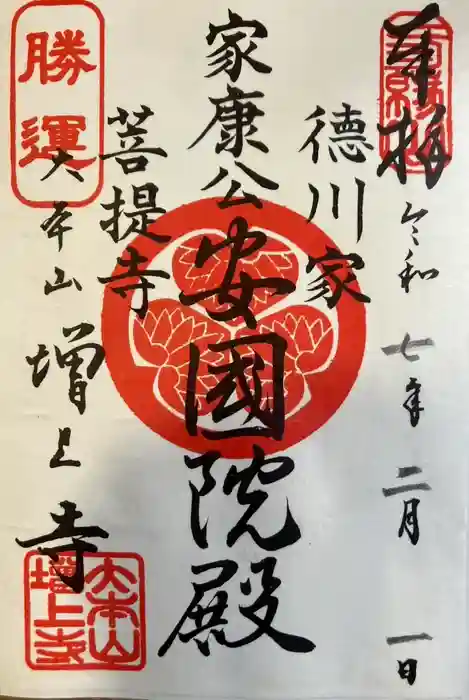 奉拝
令和七年二月一日
徳川家
家康公
安國院殿
菩提寺
勝運
大本山増上寺
大本山
増上寺